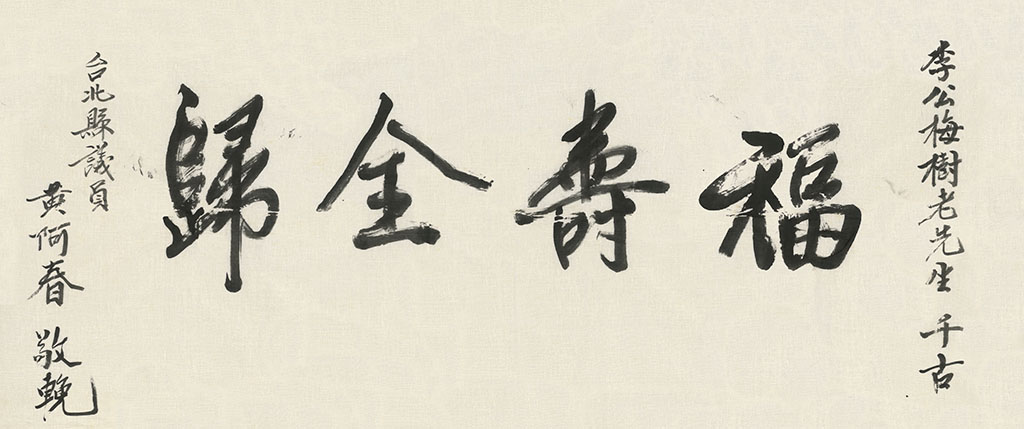 李公梅樹老先生 千古
福壽全歸
台北縣議員
黃阿春 敬輓